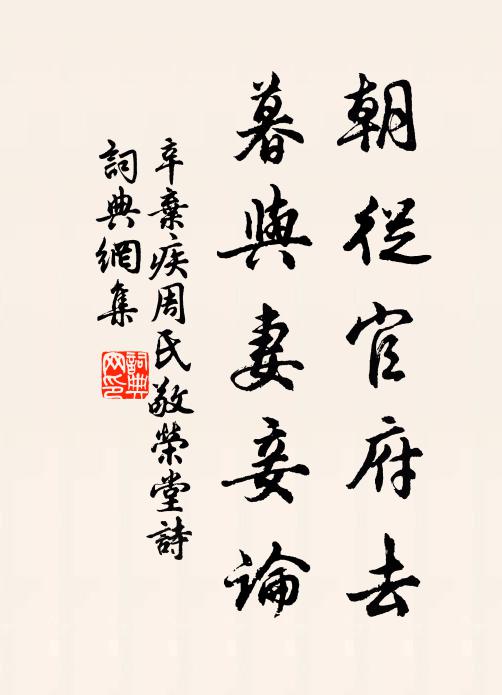 朝從官府去
暮與妻妾論
辛棄疾周氏敬榮堂詩
詞典網集
詞典
网印